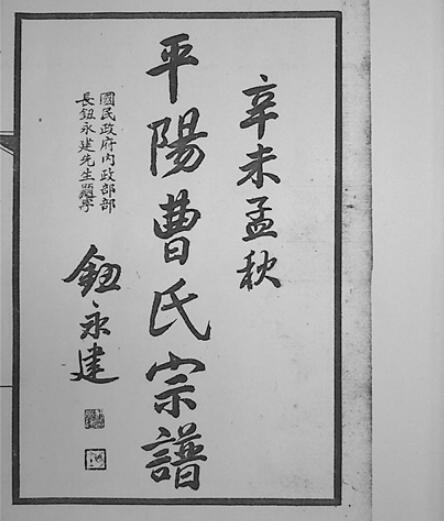 辛未孟秋
平陽曹氏宗譜
國民政府內政部部
長鈕永建先生題字
鈕永建